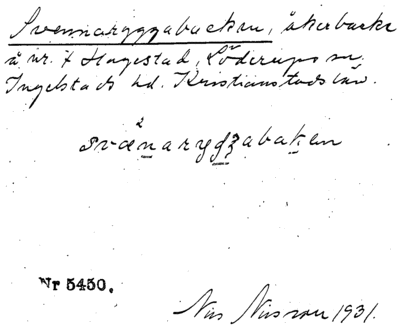 Svennaryggabacken, åkerbacke
å nr. 7 Hagestad, Löderups sn.
Ingelstads hd. Kristianstads län.
2
svænarygzabaken
Nr 5450.
Nils Nilsson 1931.